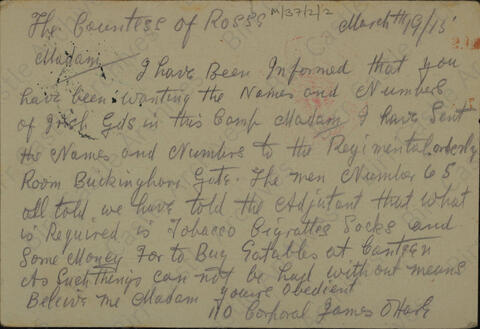 The Countess of Rosse M/37/2/2 March th 19/15
Madam I have Been Informed that you
have been wanting the Names and Numbers
of Irish Gds in this Camp Madam I have Sent
the Names and Numbers to the Regimental orderly
Room Buckingham Gate. The men Number 65
all told we have told the Adjutant that what
is Required is Tobacco Cigrattes Socks and
Some Money For to Buy Eatables at Canteen
As Such things can not be had without means
Believe me Madam youre obedient
Corporal James OHare